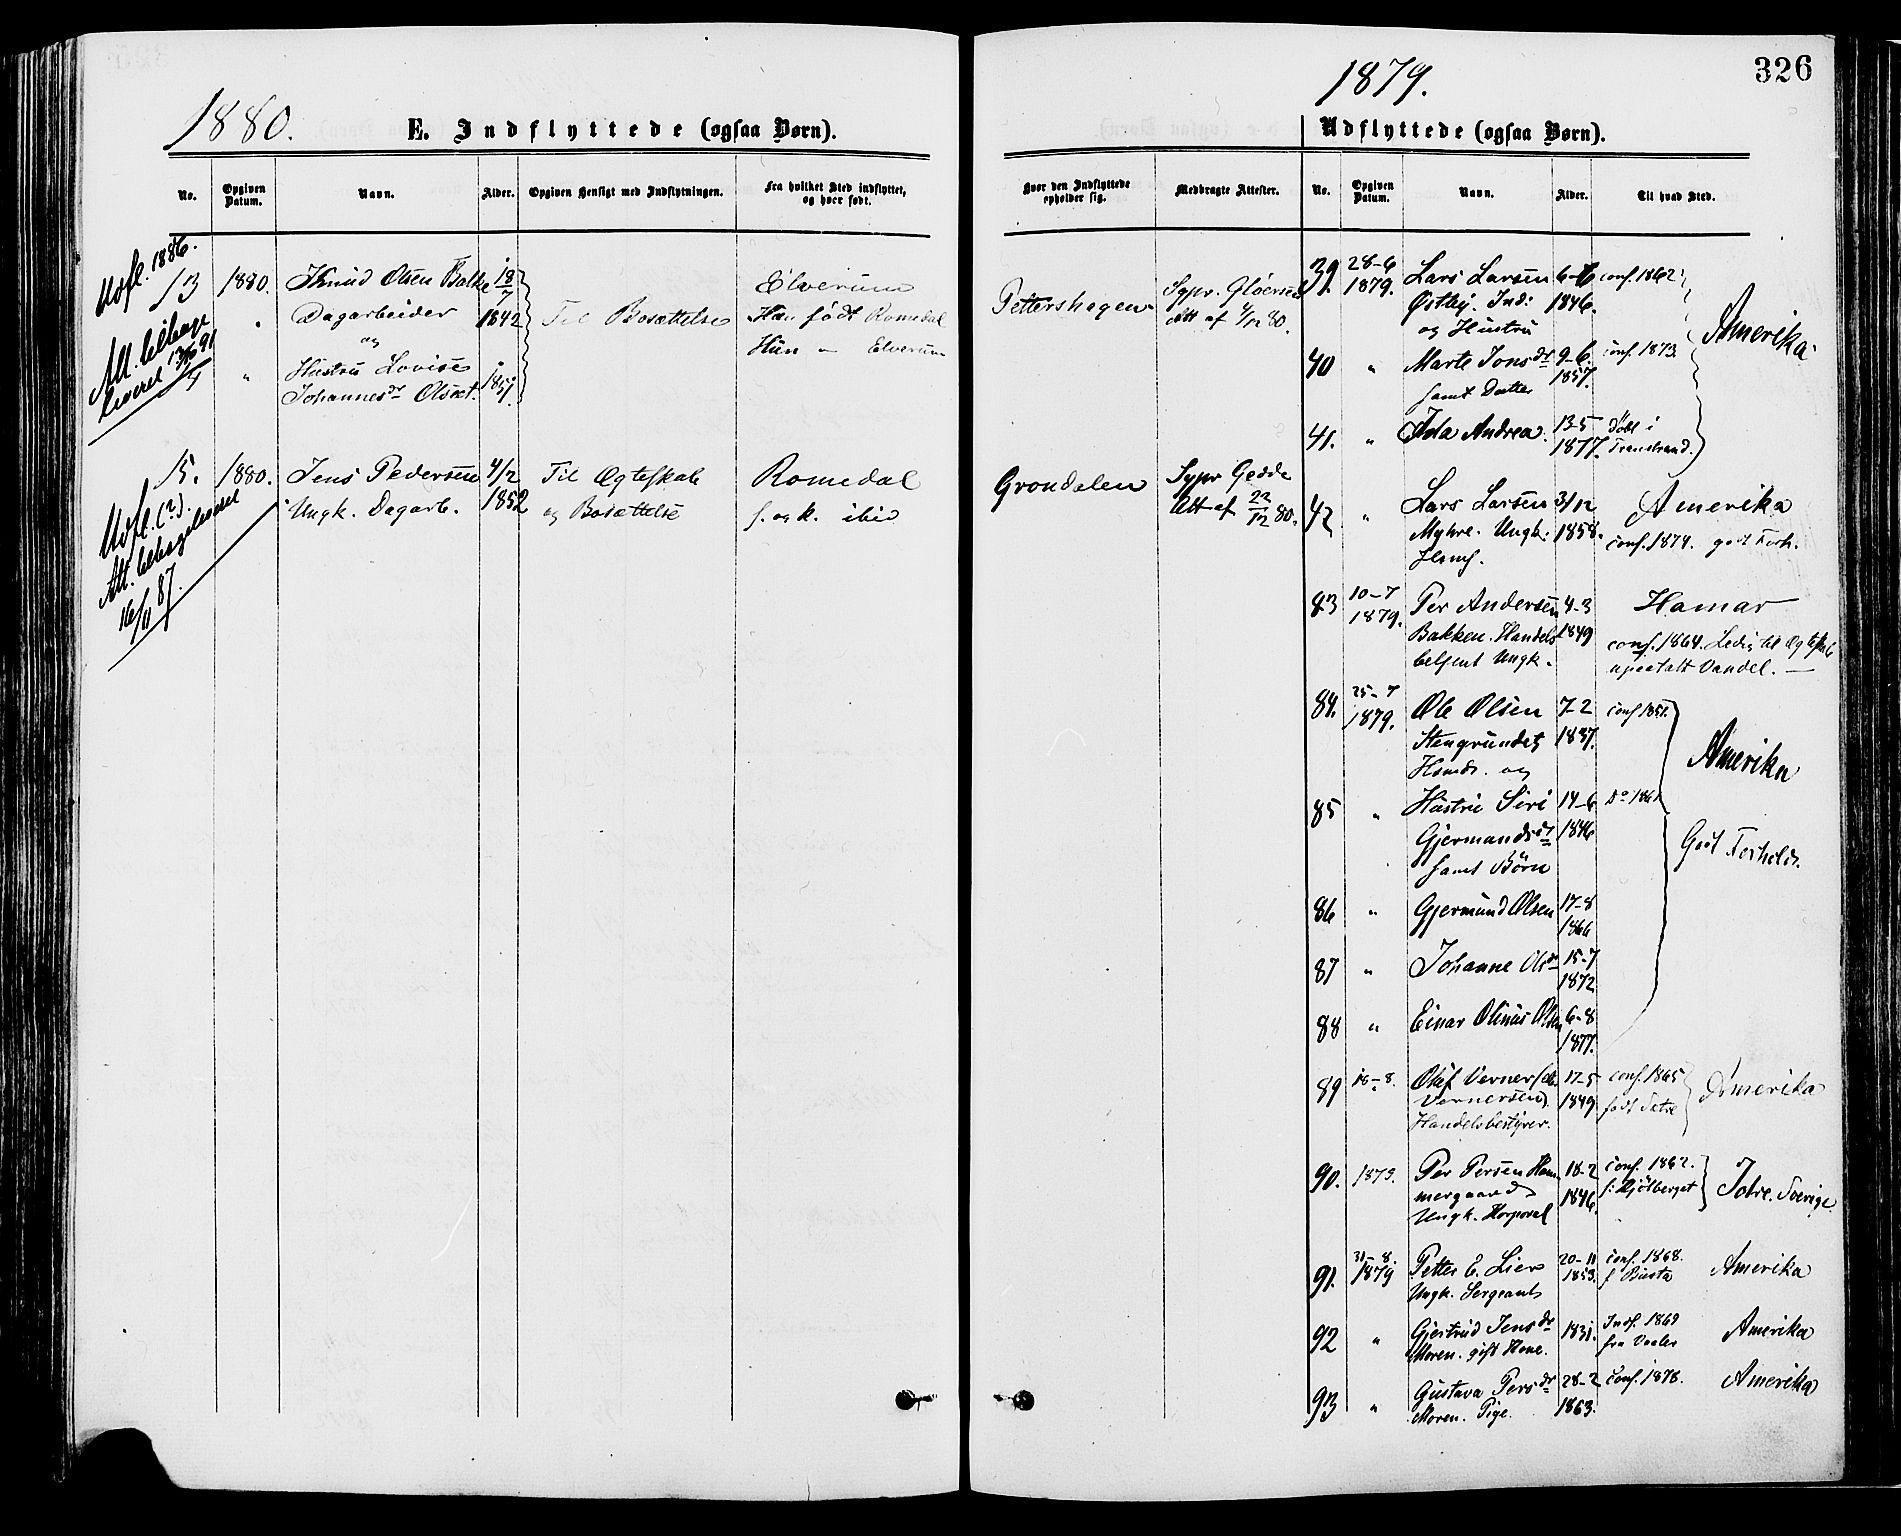 1880.
E. Indflyttede (ogsaa Børn).
No.
Opgiven Datum.
Navn.
Alder.
Opgiven Hensigt med Indflytningen.
Fra hvilket Sted indflyttet, og hvor født.
Udfl. 1886.
Att. tilbage
leveret 13/10 91
13
1880.
Knud Olsen Bakke
Dagarbeider
og
Hustru Lovise
Johannesdr Olset.
18/7
1842
1851.
Til Bosættelse
Elverum
Han født Romedal
Hun – Elverum
15.
1880.
Jens Pedersen
Ungk. Dagarb.
4/2
1852
Til Ægteskab
og Bosættelse
Romedal
f. og k. ibid
Udfl. (?).
Att. tilbageleveret
16/11 87.
1879.
326
Udflyttede (ogsaa Børn).
Hvor den Indflyttede opholder sig.
Medbragte Attester.
No.
Opgiven Datum.
Navn.
Alder.
Til hvad Sted.
Pettershagen
Sgpr. Gløersen
Att af 4/12 80.
Grøndalen
Sgpr Gedde
Att af 22/12 80.
39.
28–6
1879.
Lars Larsen
Østby. Ind:
og Hustru
6–6
1846.
conf. 1862.
Amerika
40
"
Marte Jonsdr
samt Datter
9–6.
1857.
conf. 1873.
41.
"
Ida Andrea.
13–5
1877.
Døbt i
Transtrand.
42
"
Lars Larsen
Myhre. Ungk.
31/12
1858.
Amerika
conf. 1874. godt Forh.
83
10–7
1879.
Per Andersen
Bakken. Handels
betjent Ungk.
4–3
1849
Hamar
conf. 1864. Ledig til Ægteskab
upaatalt Vandel. –
84.
25–7
1879.
Ole Olsen
Stengrundet
Hsmd. og
7–2
1837.
conf 1851.
Amerika
85
"
Hustru Siri
Gjermundsdr
samt Børn
14–6
1846
Do 1861
Godt Forhold.
86
"
Gjermund Olsen
17–8
1866
87
"
Johanne Olsdr
15–7
1872
88
"
Einar Olinus Olsen
6–8
1877.
89
18–8.
Oluf Verner (
Vernersen)
Handelsbestyrer.
17–5
1849
conf. 1865
født Sætre
Amerika
90.
1879.
Per Persen Ham
mergaard
Ungk. Korporal
18–2
1846
conf. 1862.
f: Kjølberget
Sverige
91.
31–8.
1879
Petter C. Lier
Ungk. Sergeant
20–11
1853.
conf. 1868.
f Busta
Amerika
92
"
Gjertrud Jensdr
Moren. gift Kone.
1831.
Indf. 1869
fra Vaaler
Amerika
93
"
Gustava Persdr
Moren. Pige.
28–2
1863.
conf. 1878.
Amerika